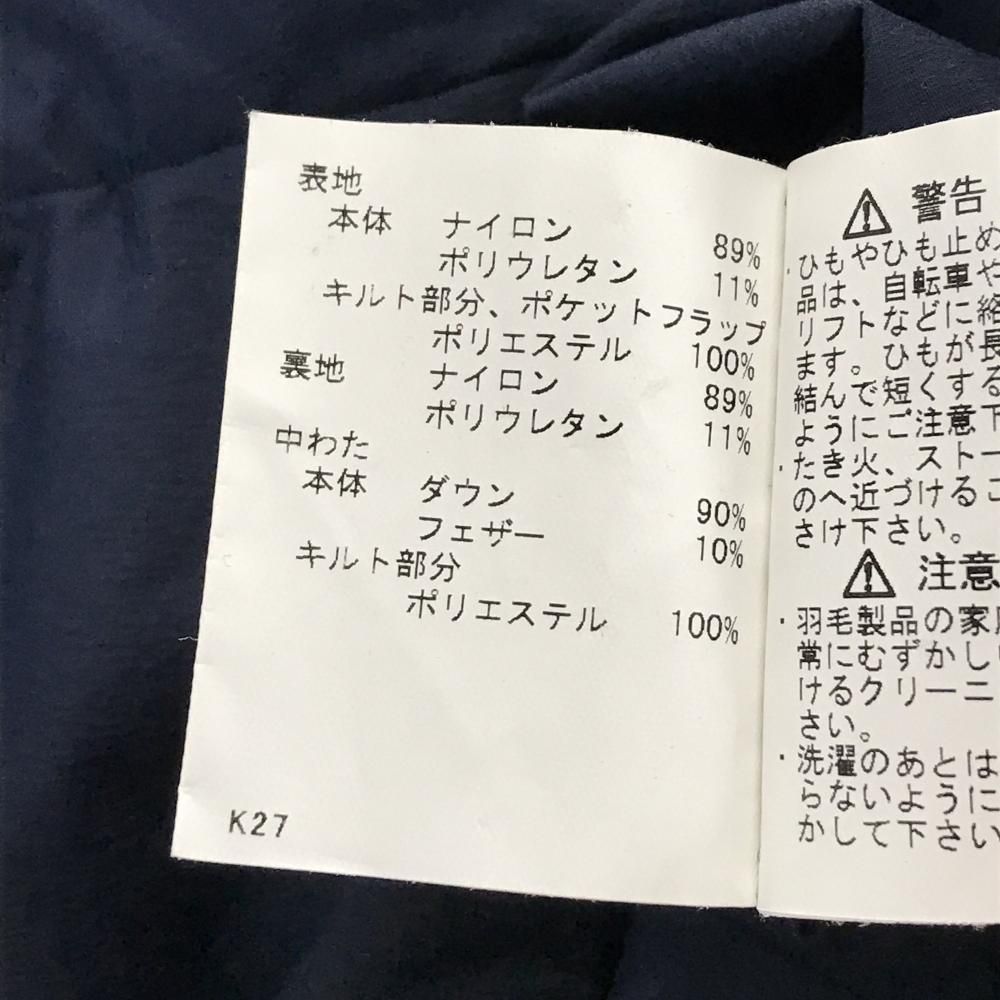 表地
本体 ナイロン 89%
ポリウレタン 11%
キルト部分、ポケットフラップ
ポリエステル 100%
裏地 ナイロン 89%
ポリウレタン 11%
中わた
本体 ダウン 90%
フェザー 10%
キルト部分
ポリエステル 100%
K27
⚠ 警告
・ひもやひも止め
品は、自転車や
リフトなどに絡
ます。ひもが長
結んで短くする
ようにご注意下
・たき火、ストー
のへ近づけるこ
さけ下さい。
⚠ 注意
・羽毛製品の家
常にむずかしい
けるクリーニ
さい。
・洗濯のあとは
らないように
かして下さい